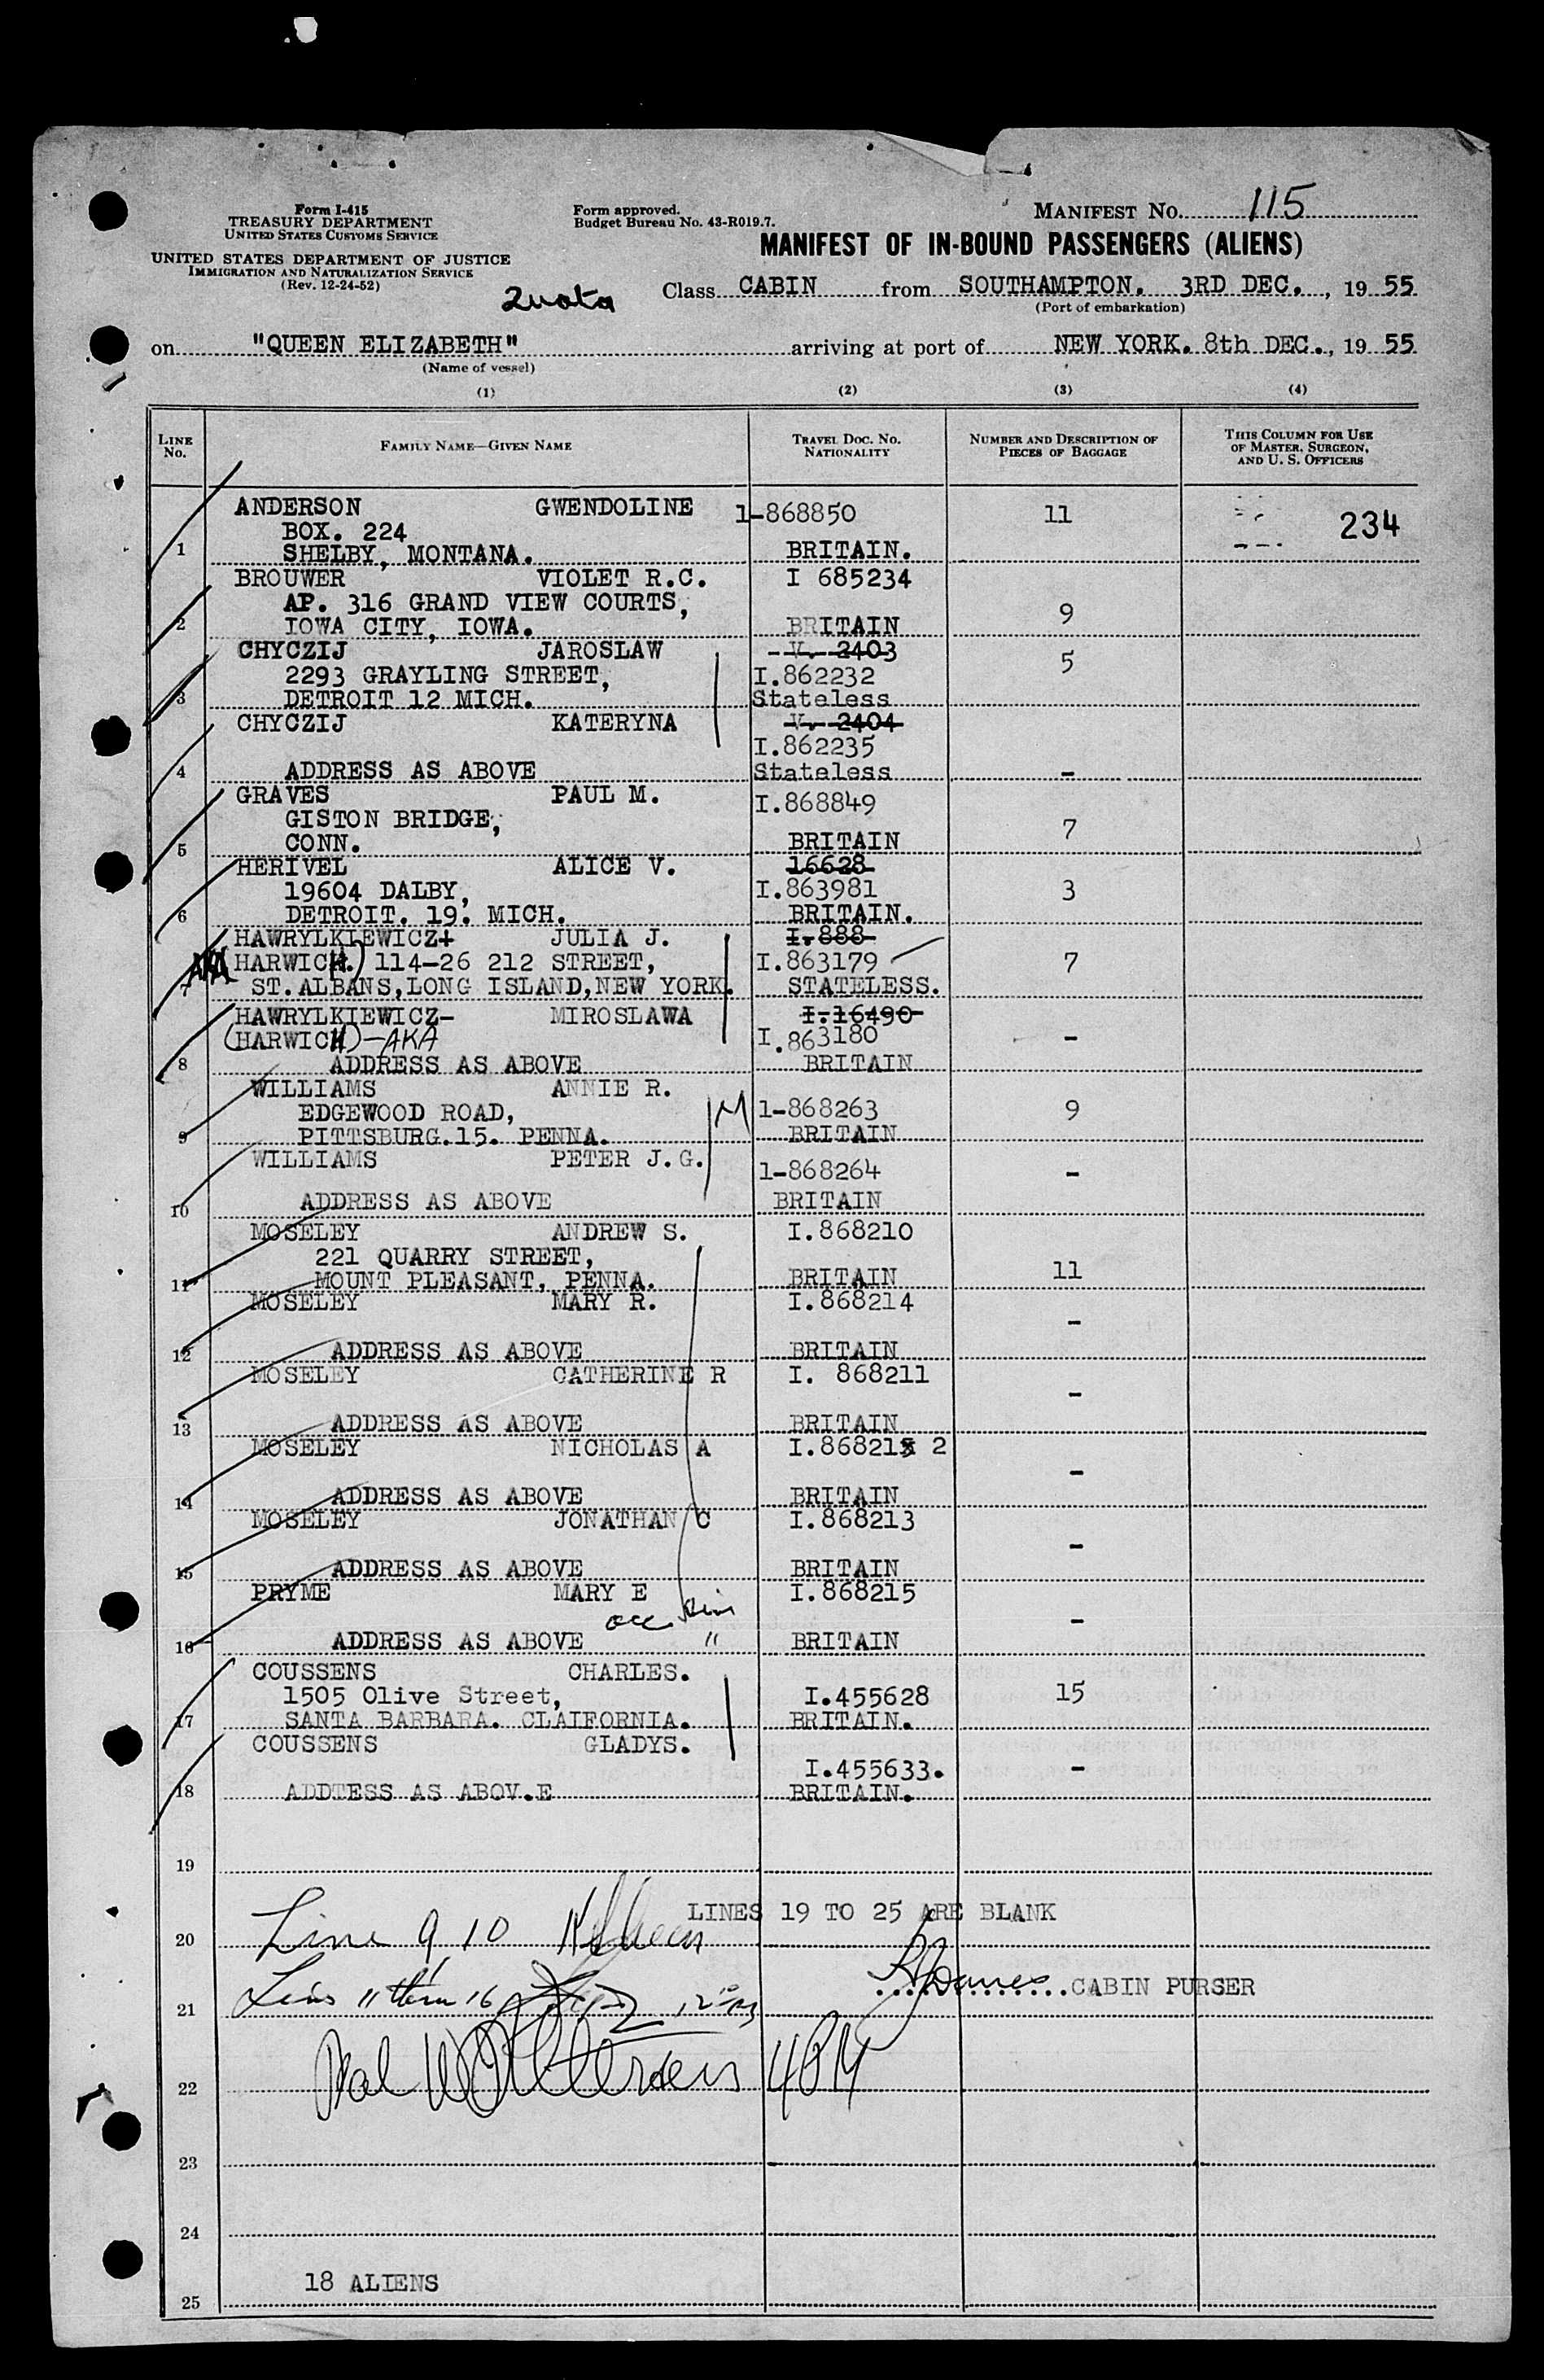 Form I-415
TREASURY DEPARTMENT
UNITED STATES CUSTOMS SERVICE
UNITED STATES DEPARTMENT OF JUSTICE
IMMIGRATION AND NATURALIZATION SERVICE
(Rev. 12-24-52)
Form approved.
Budget Bureau No. 43-R019.7.
MANIFEST NO. 115
MANIFEST OF IN-BOUND PASSENGERS (ALIENS)
Quota
Class CABIN from SOUTHAMPTON. 3RD DEC. , 19 55
(Port of embarkation)
on "QUEEN ELIZABETH" arriving at port of NEW YORK. 8th DEC. , 19 55
(Name of vessel)
(1) (2) (3) (4)
LINE NO. FAMILY NAME—GIVEN NAME TRAVEL DOC. NO. NATIONALITY NUMBER AND DESCRIPTION OF PIECES OF BAGGAGE THIS COLUMN FOR USE OF MASTER, SURGEON, AND U. S. OFFICERS
ANDERSON GWENDOLINE 1-868850 11 234
BOX. 224
1 SHELBY, MONTANA. BRITAIN.
BROUWER VIOLET R.C. I 685234
AP. 316 GRAND VIEW COURTS, 9
2 IOWA CITY, IOWA. BRITAIN
CHYCZIJ JAROSLAW V. 2403 5
2293 GRAYLING STREET, I.862232
3 DETROIT 12 MICH. Stateless
CHYCZIJ KATERYNA V. 2404
I.862235
4 ADDRESS AS ABOVE Stateless -
GRAVES PAUL M. I.868849
GISTON BRIDGE, 7
5 CONN. BRITAIN
HERIVEL ALICE V. 16628
19604 DALBY, I.863981 3
6 DETROIT. 19. MICH. BRITAIN.
HAWRYLKIEWICZ+ JULIA J. I.888
AKA HARWICH.) 114-26 212 STREET, I.863179 7
7 ST.ALBANS,LONG ISLAND,NEW YORK. STATELESS.
HAWRYLKIEWICZ- MIROSLAWA I.16490
(HARWICH)-AKA I.863180 -
8 ADDRESS AS ABOVE BRITAIN
WILLIAMS ANNIE R.
EDGEWOOD ROAD, M 1-868263 9
9 PITTSBURG.15. PENNA. BRITAIN
WILLIAMS PETER J.G. 1-868264 -
10 ADDRESS AS ABOVE BRITAIN
MOSELEY ANDREW S. I.868210
221 QUARRY STREET, 11
11 MOUNT PLEASANT, PENNA. BRITAIN
MOSELEY MARY R. I.868214
-
12 ADDRESS AS ABOVE BRITAIN
MOSELEY CATHERINE R I. 868211
-
13 ADDRESS AS ABOVE BRITAIN
MOSELEY NICHOLAS A I.86821 2
-
14 ADDRESS AS ABOVE BRITAIN
MOSELEY JONATHAN C I.868213
-
15 ADDRESS AS ABOVE BRITAIN
PRYME MARY E I.868215
-
16 ADDRESS AS ABOVE " BRITAIN
COUSSENS CHARLES.
1505 Olive Street, I.455628 15
17 SANTA BARBARA. CLAIFORNIA. BRITAIN.
COUSSENS GLADYS.
I.455633. -
18 ADDTESS AS ABOV.E BRITAIN.
19
LINES 19 TO 25 ARE BLANK
20 Line 9, 10
CABIN PURSER
21 Lines 11 thru 16
22
23
24
18 ALIENS
25